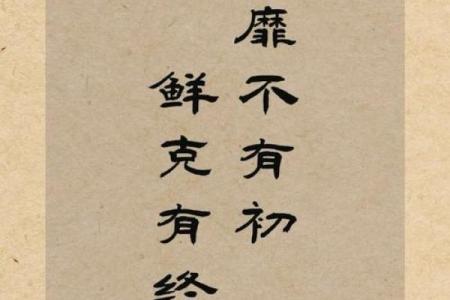 靡不有初
鲜克有终